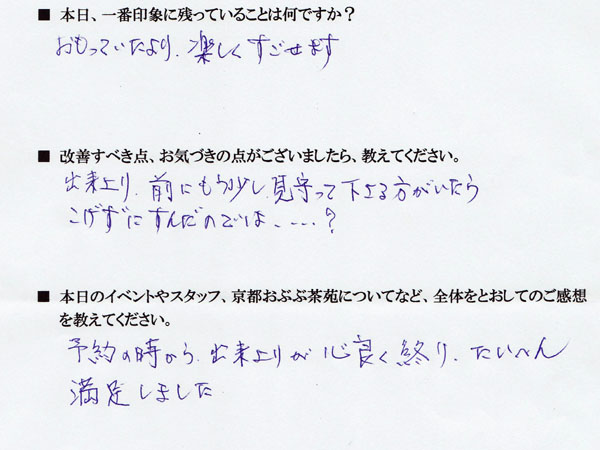 ■ 本日、一番印象に残っていることは何ですか？
おもっていたより、楽しくすごせます
■ 改善すべき点、お気づきの点がございましたら、教えてください。
出来上り、前にもう少し見守って下さる方がいたら
こげずにすんだのでは、‥‥？
■ 本日のイベントやスタッフ、京都おぶぶ茶苑についてなど、全体をとおしてのご感想
を教えてください。
予約の時から、出来上りが心良く終り、たいへん
満足しました